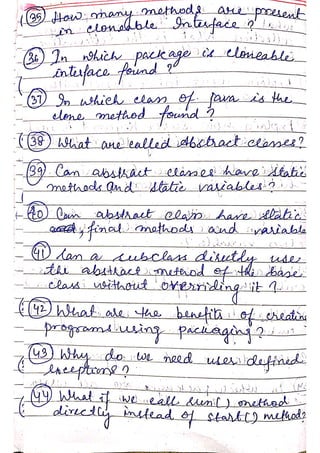 (35) How many methods are present
in cloneable Interface ?
(36) In which package is cloneable
interface found ?
(37) In which class of java is the
clone method found ?
(38) What are called Abstract classes?
(39) Can abstract classes have static
methods and static variables ?
(40) Can abstract class have static
, final methods and variable
(41) Can a subclass directly use
the abstract method of the base
class without overriding it ?
(42) What are the benefits of creating
programs using packaging ?
(43) Why do we need user defined
exceptions ?
(44) What if we call run() method
directly instead of start() method?